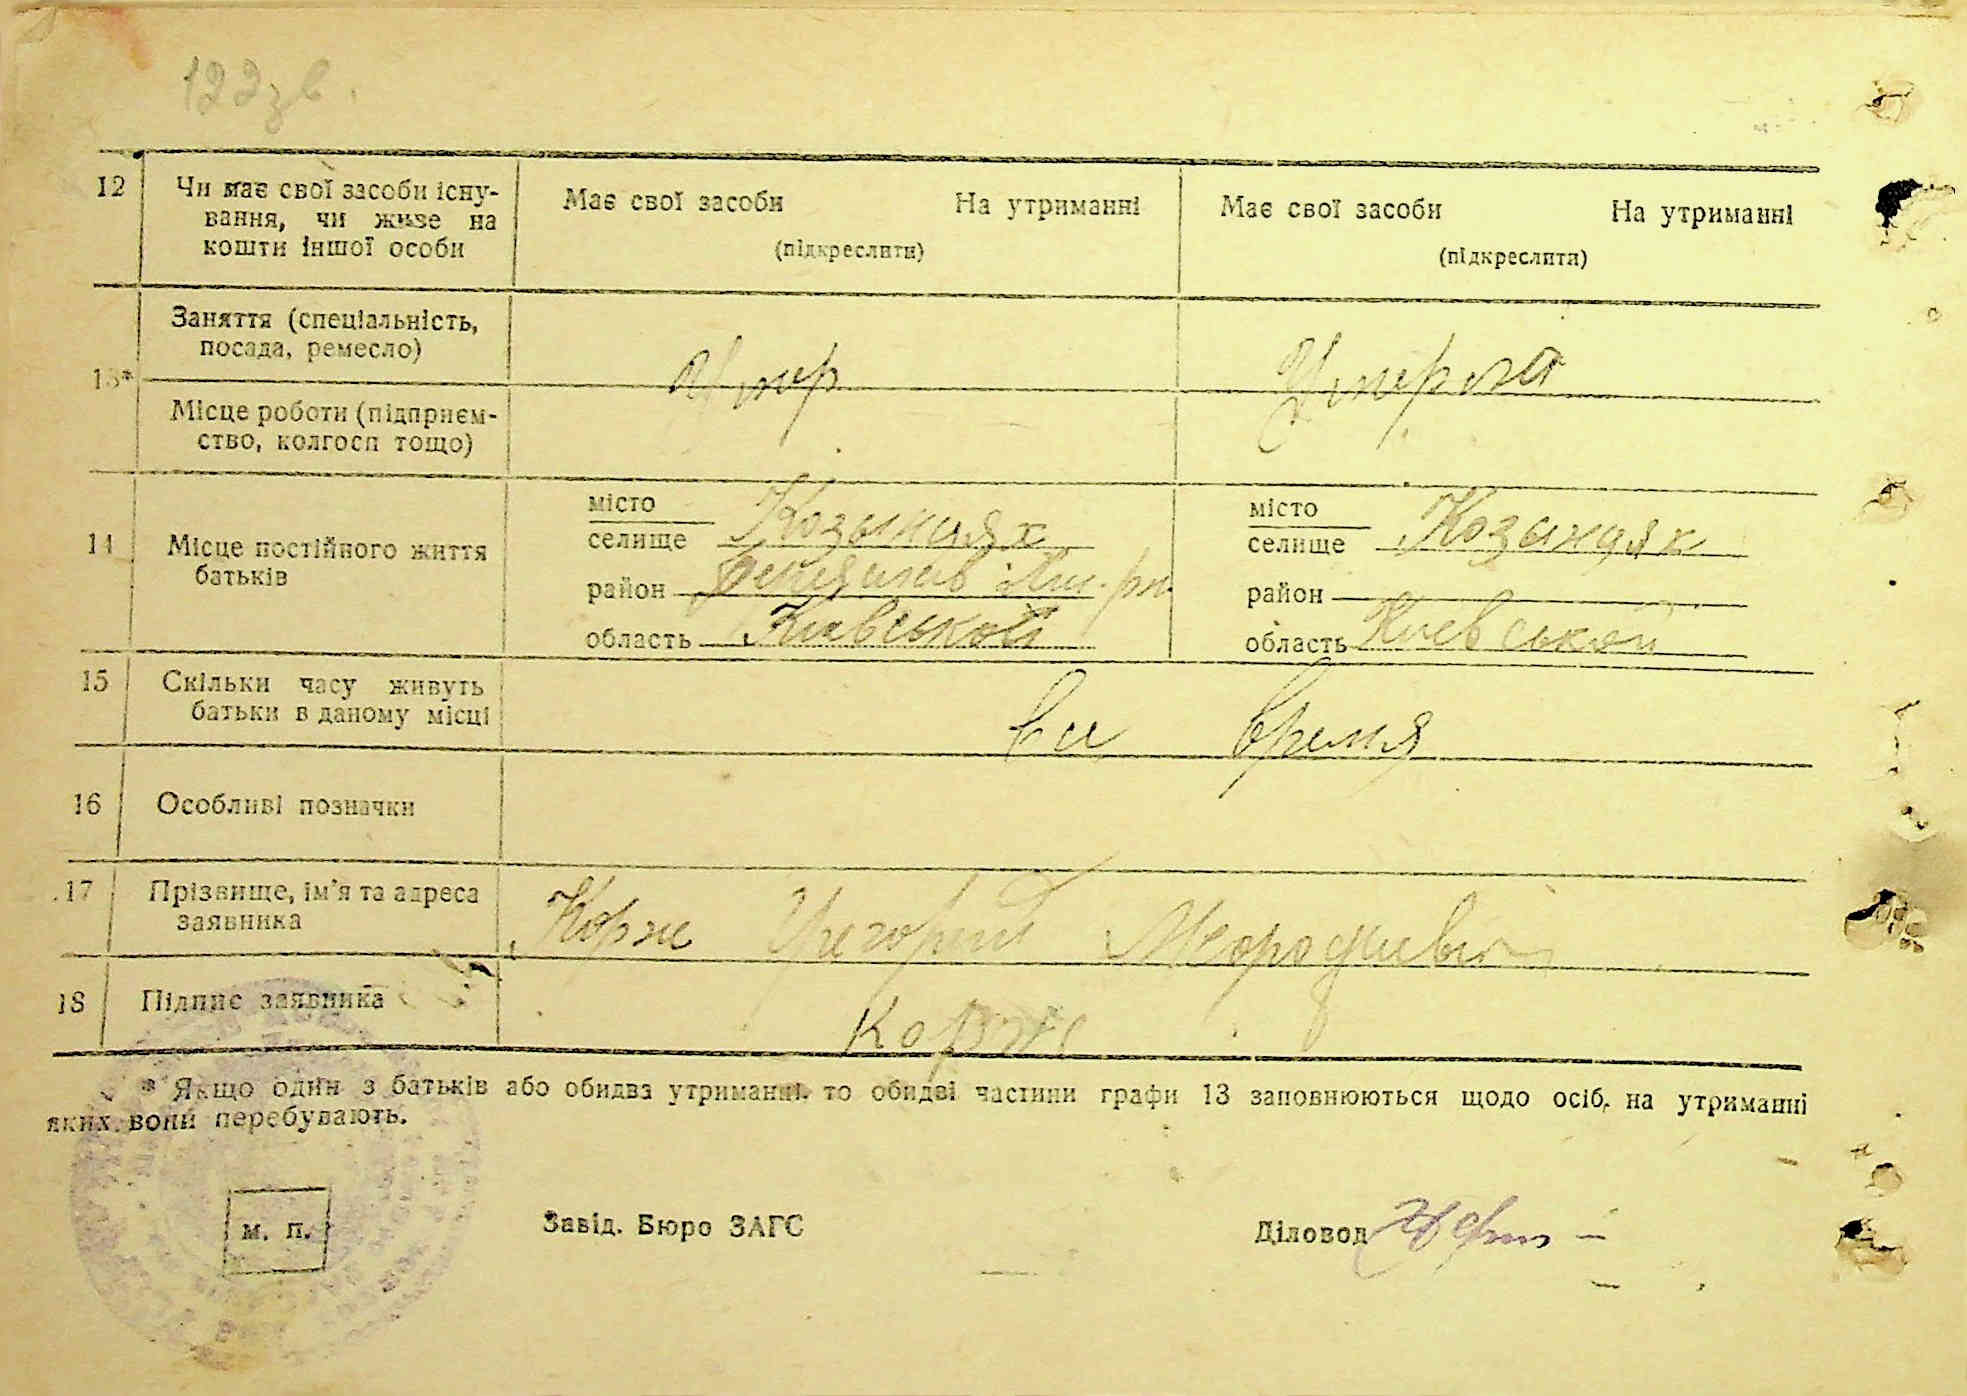 122зв.
12 Чи має свої засоби існу-
вання, чи живе на
кошти іншої особи
Має свої засоби На утриманні
(підкреслити)
Має свої засоби На утриманні
(підкреслити)
13*
Заняття (спеціальність,
посада, ремесло)
Умер
Умерла
Місце роботи (підприєм-
ство, колгосп тощо)
14 Місце постійного життя
батьків
місто
селище Козынцях
район
область Киевской
місто
селище Козынцях
район
область Киевской
15 Скільки часу живуть
батьки в даному місці
все время
16 Особливі позначки
17 Прізвище, ім'я та адреса
заявника
Корж Григорий
18 Підпис заявника
Корж
* Якщо один з батьків або обидва утриманні, то обидві частини графи 13 заповнюються щодо осіб, на утриманні
яких вони перебувають.
м. п.
Завід. Бюро ЗАГС
Діловод